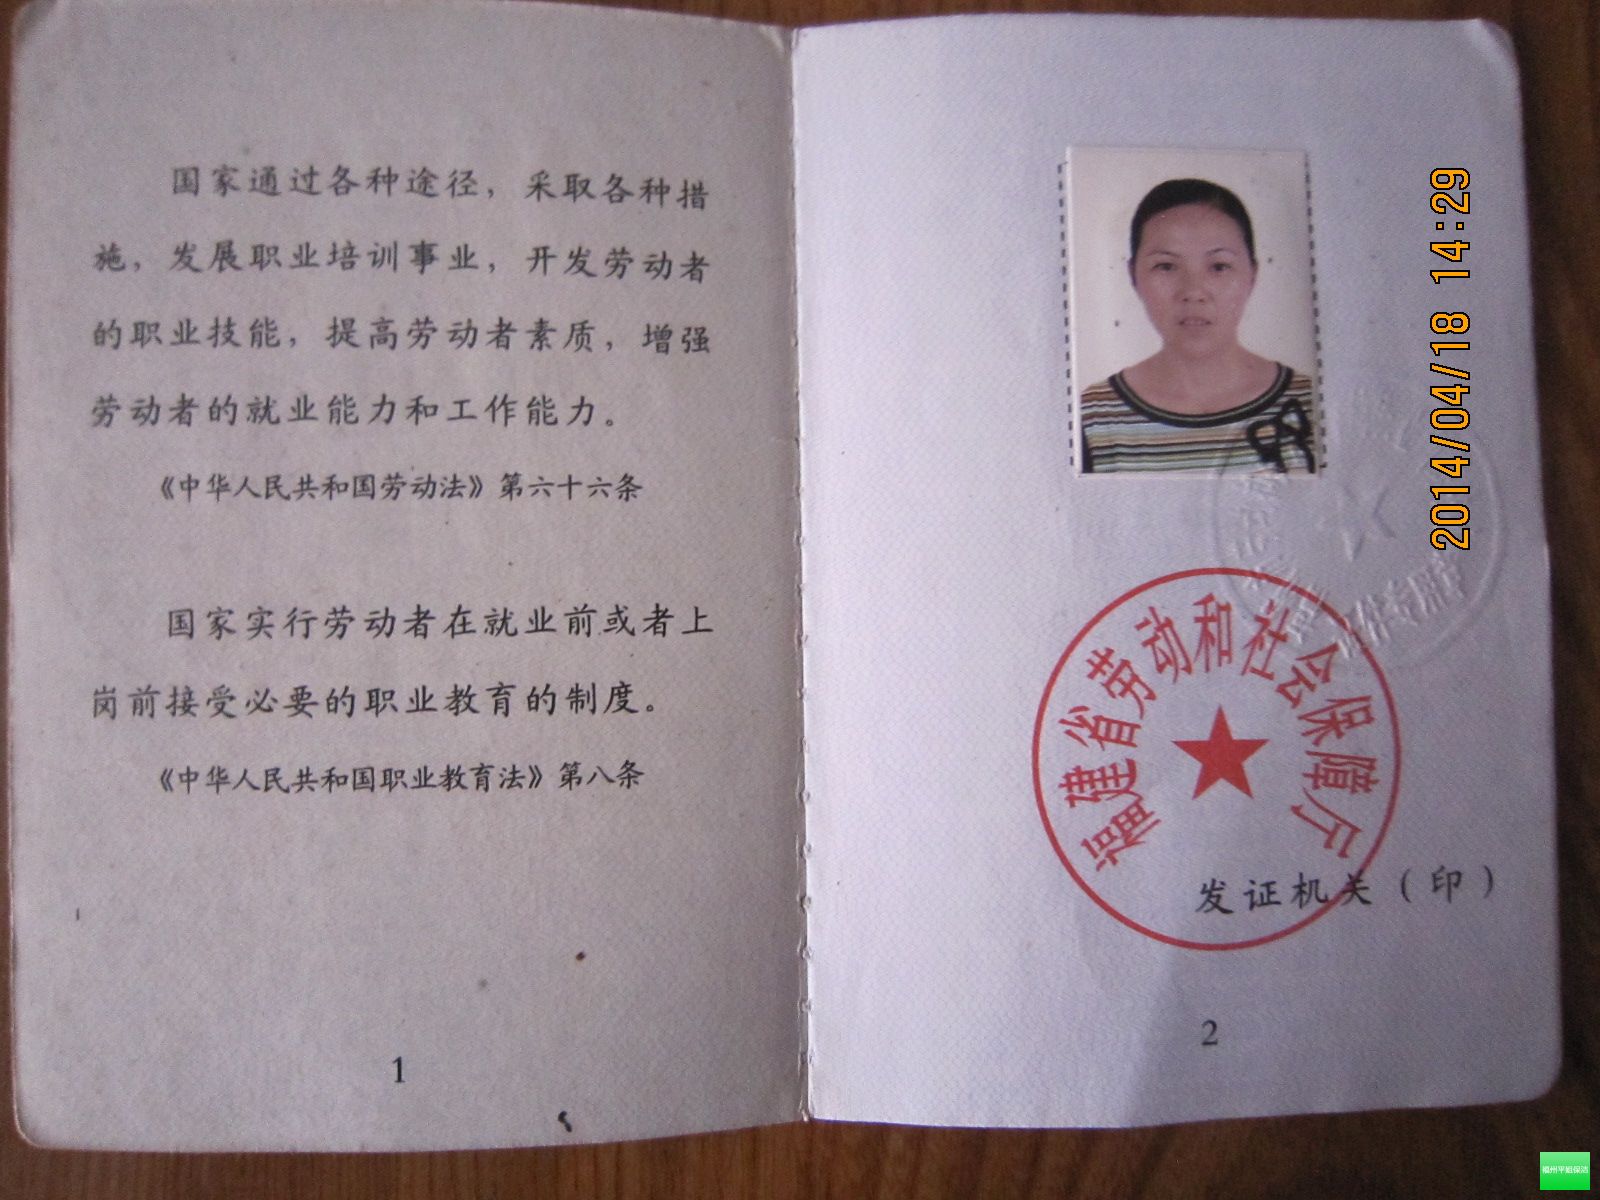 国家通过各种途径，采取各种措
施，发展职业培训事业，开发劳动者
的职业技能，提高劳动者素质，增强
劳动者的就业能力和工作能力。
《中华人民共和国劳动法》第六十六条
国家实行劳动者在就业前或者上
岗前接受必要的职业教育的制度。
《中华人民共和国职业教育法》第八条
1
2014/04/18 14:29
证件专用章
福建省劳动和社会保障厅
发证机关（印）
2
福州平姐保洁